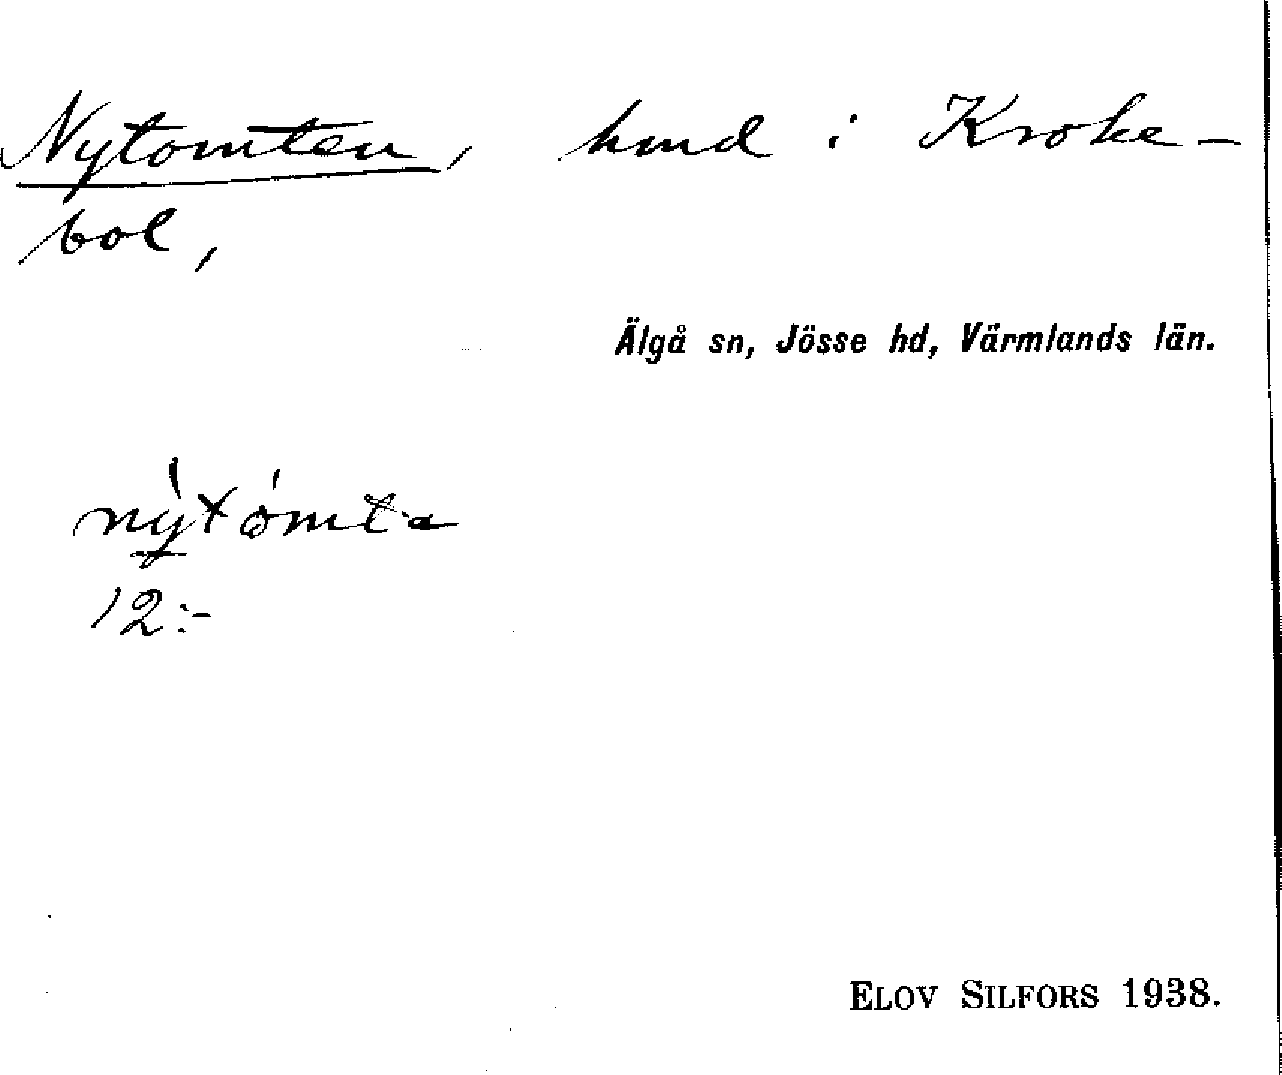 Nytomten, hmd i Kroke-
bol,
Älgå sn, Jösse hd, Värmlands län.
nỳtómta
12:-
ELOV SILFORS 1938.